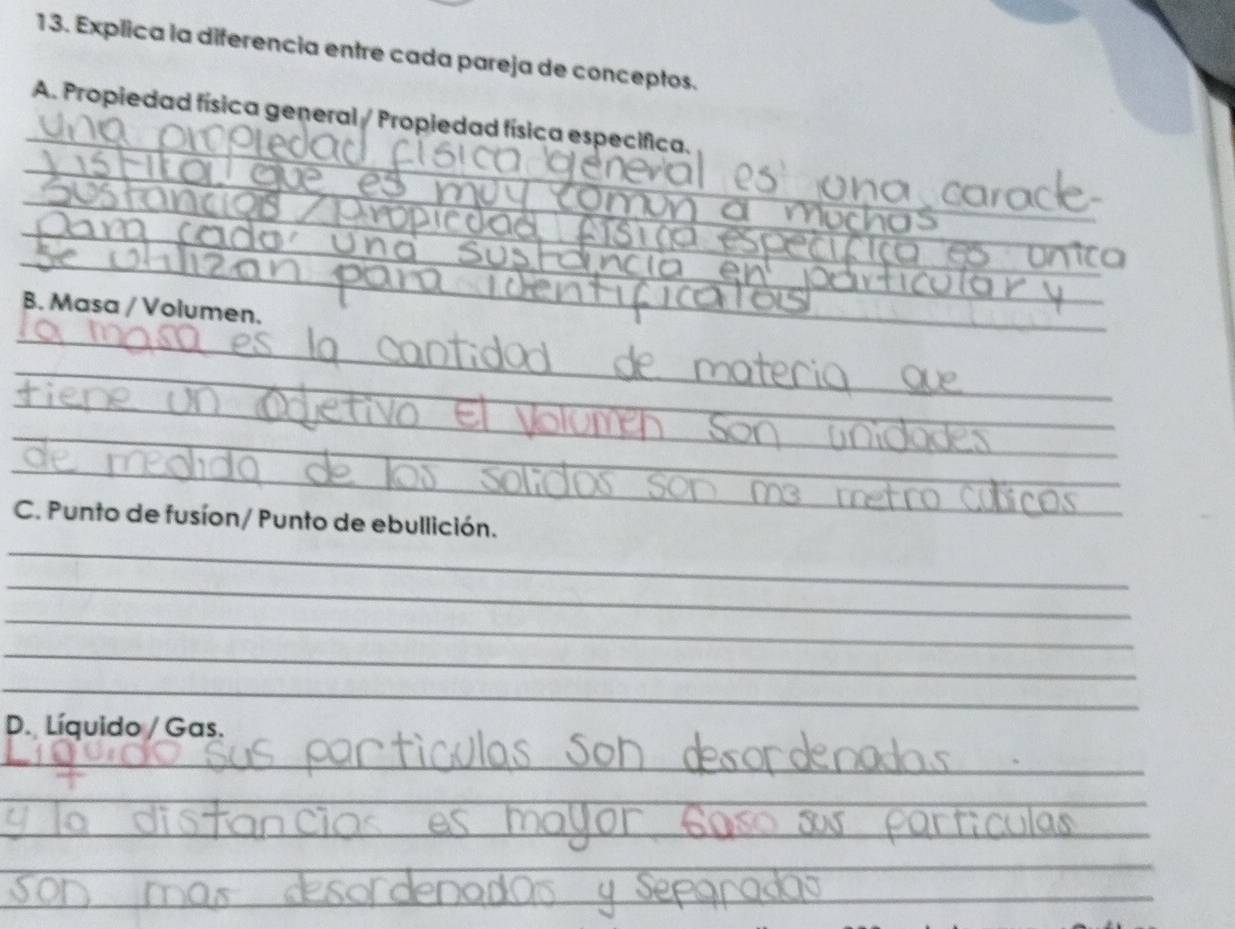 13. Explica la diferencia entre cada pareja de conceptos.
A. Propiedad física general / Propiedad física especifica.
una propiedad física general es una caracte-
ristica que es muy comun a muchas
sustancias / propiedad física especifica es unica
para cada una sustancia en particular y
se utilizan para identificarlas
B. Masa / Volumen.
la masa es la cantidad de materia que
tiene un odjetivo El Volumen son unidades
de medida de los solidos son m3 metro cubicos
C. Punto de fusíon/ Punto de ebullición.
D. Líquido / Gas.
Liquido sus particulas son desordenadas
y la distancias es mayor Gaso sus particulas
son mas desordenadas y separadas